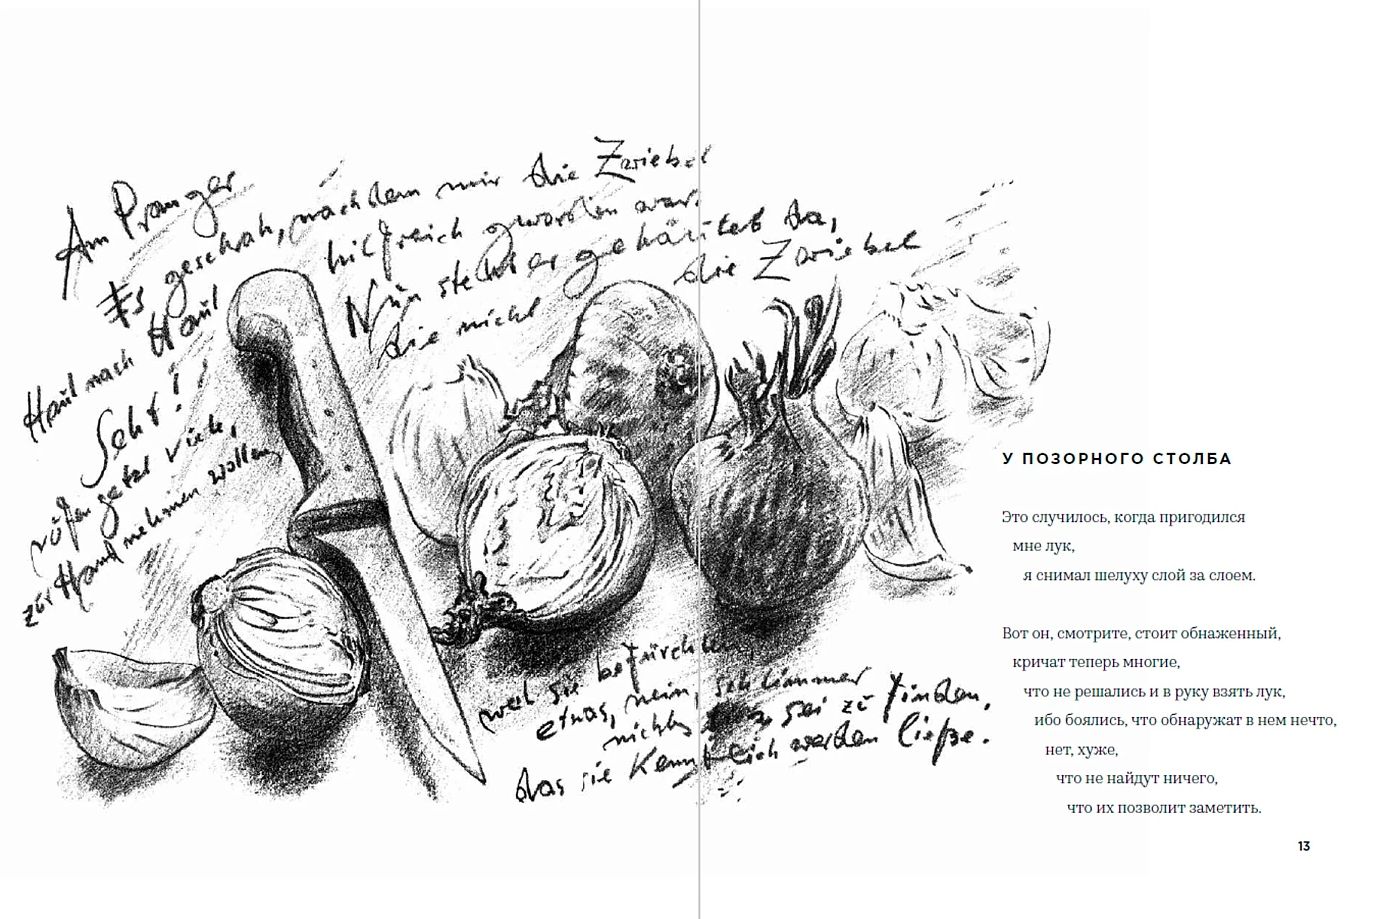 Am Pranger
Es geschah, nachdem mir die Zwiebel
hilfreich geworden war.
Haut nach Haut
Seht!
Nun steht er gehäutet da,
rufen jetzt viele,
die nicht die Zwiebel
zur Hand nehmen wollen,
weil sie befürchten
etwas, nein, schlimmer
nichts sei zu finden,
das sie kenntlich werden ließe.
У ПОЗОРНОГО СТОЛБА
Это случилось, когда пригодился
мне лук,
я снимал шелуху слой за слоем.
Вот он, смотрите, стоит обнаженный,
кричат теперь многие,
что не решались и в руку взять лук,
ибо боялись, что обнаружат в нем нечто,
нет, хуже,
что не найдут ничего,
что их позволит заметить.
13